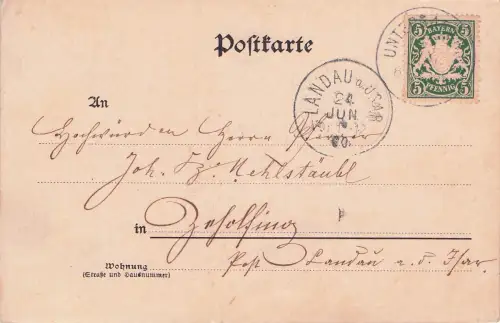 Postkarte
5 BAYERN 5
5 PFENNIG 5
UNT
LANDAU a.d. ISAR
24
JUN
00.
An
Hochwürden Herrn Pfarrer
Joh. B. Mehlstäubl
in Zeholfing
Post Landau a. d. Isar.
Wohnung
(Straße und Hausnummer)